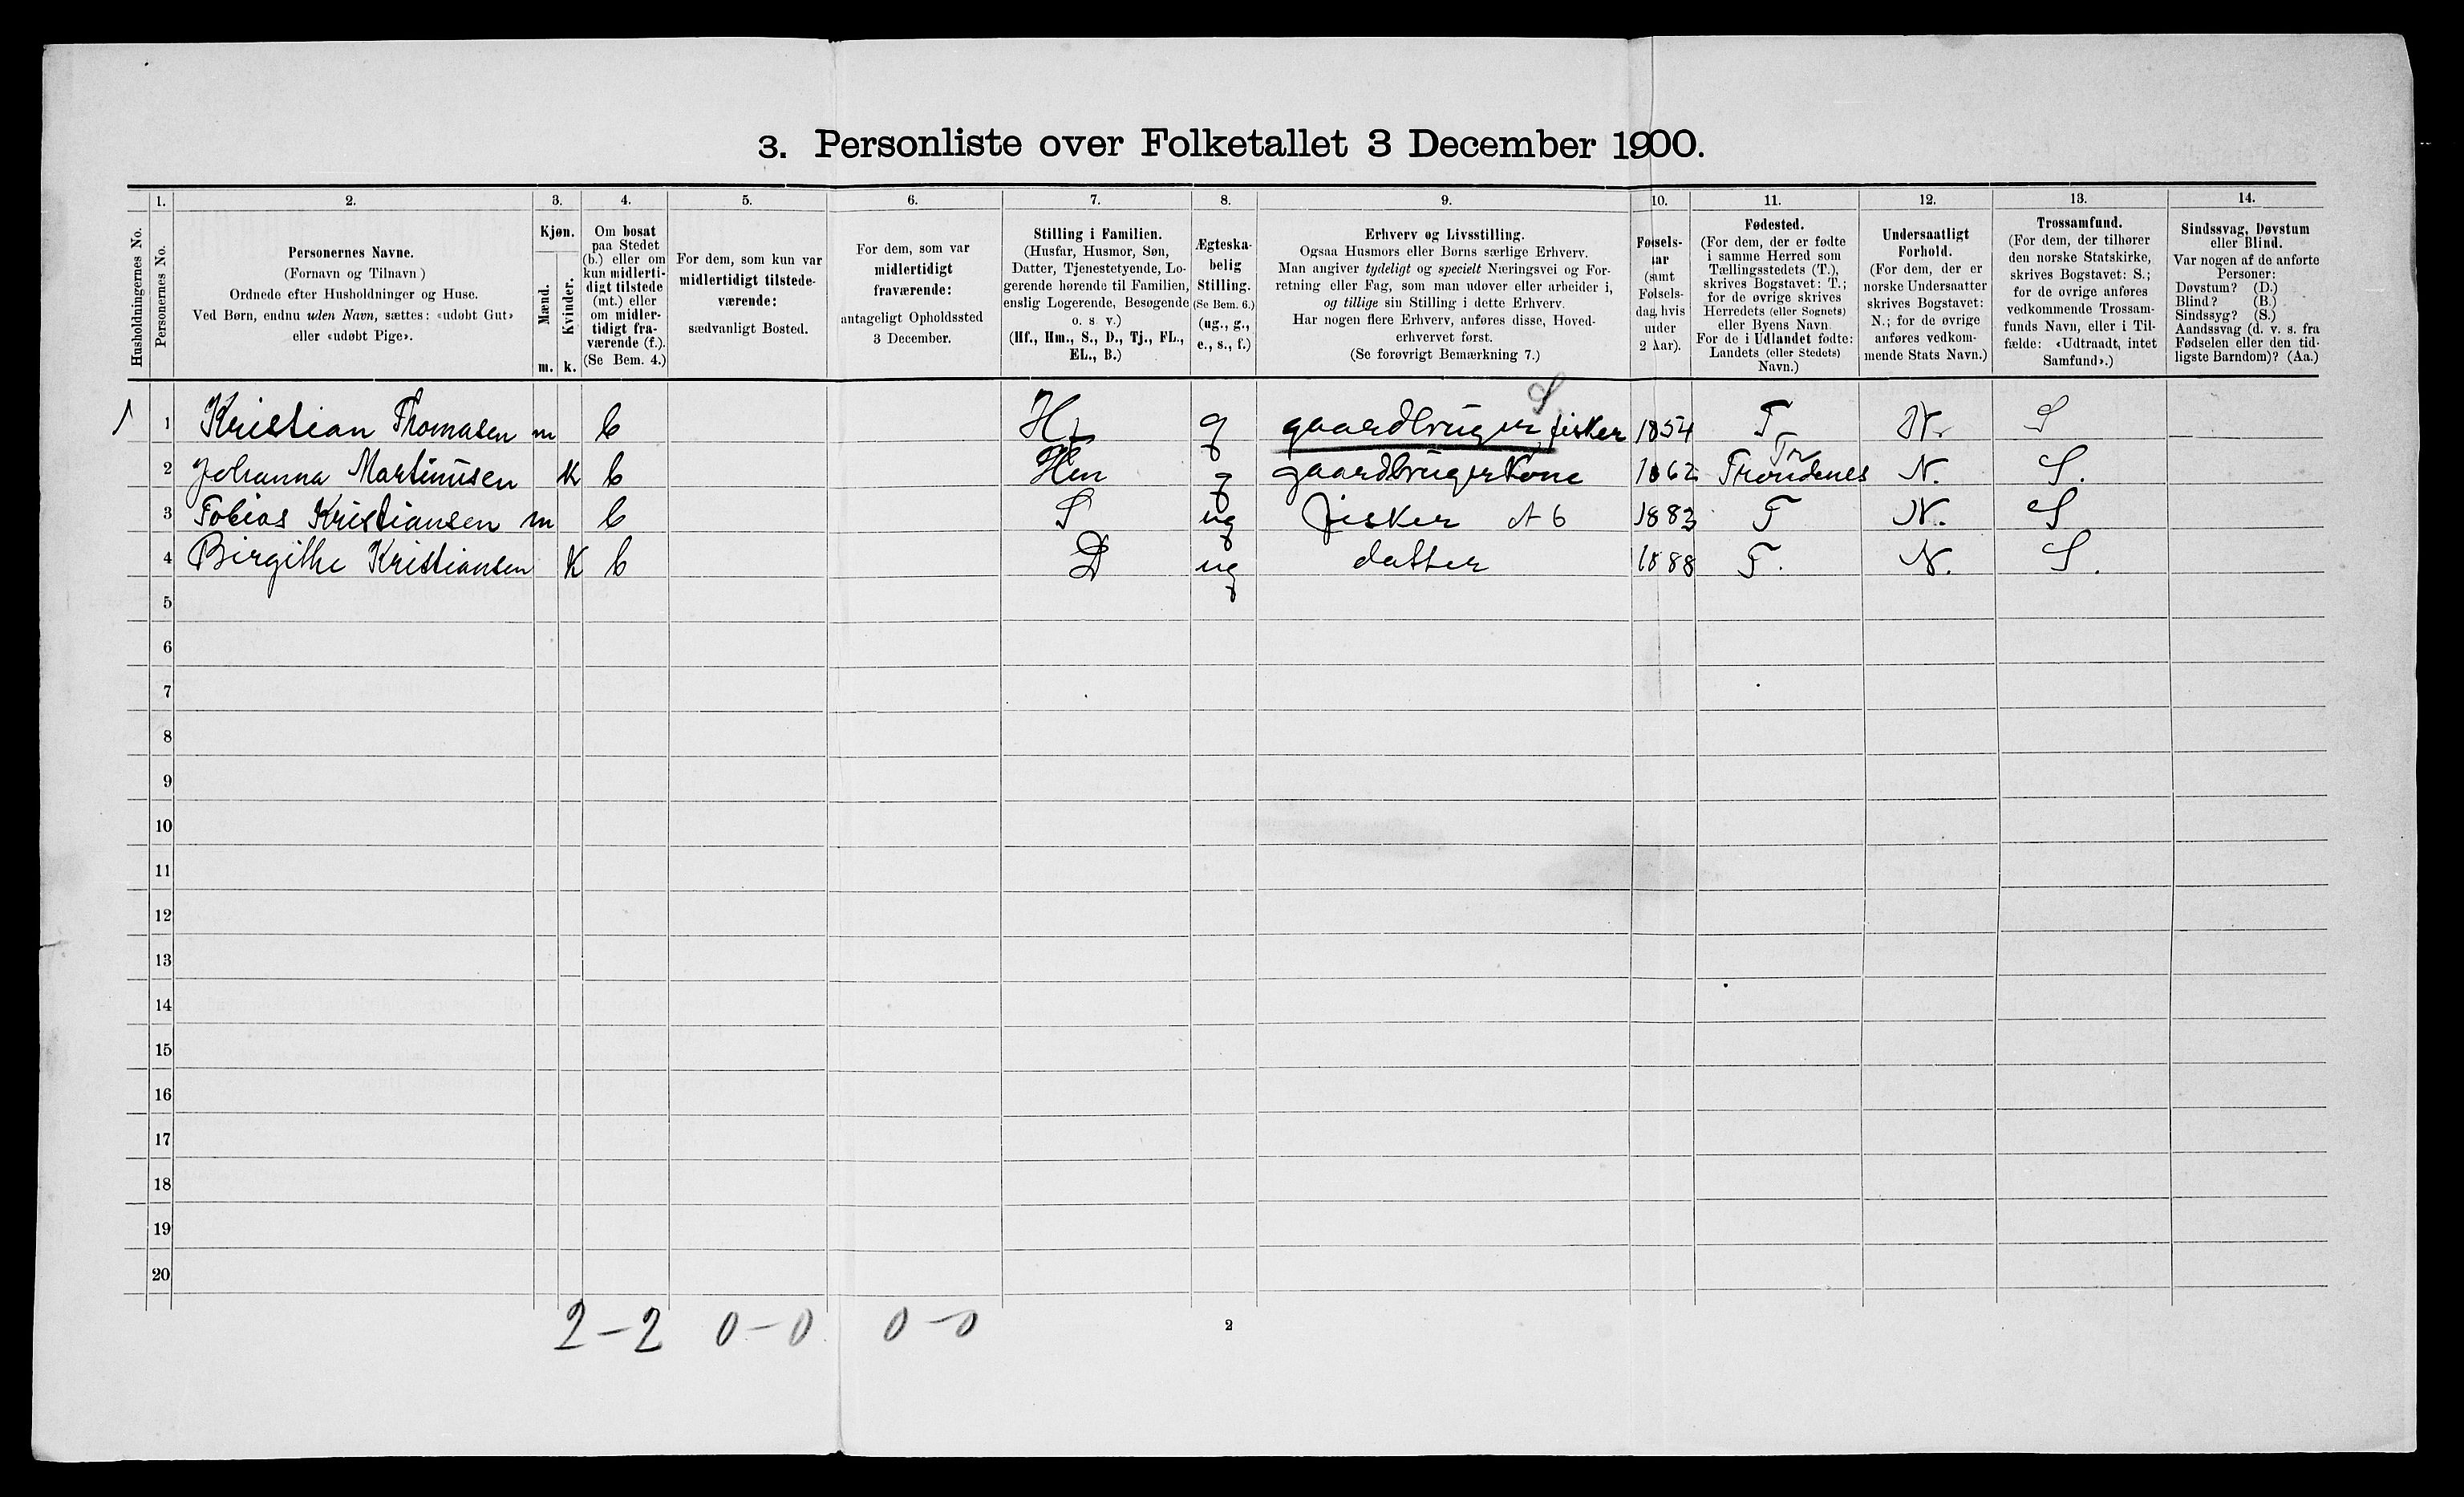 3. Personliste over Folketallet 3 December 1900.
1. 2. 3. 4. 5. 6. 7. 8. 9. 10. 11. 12. 13. 14.
Husholdningernes No.
Personernes No.
Personernes Navne.
(Fornavn og Tilnavn)
Ordnede efter Husholdninger og Huse.
Ved Børn, endnu uden Navn, sættes: «udøbt Gut»
eller «udøbt Pige».
Kjøn.
Mænd.
Kvinder.
m. k.
Om bosat
paa Stedet
(b.) eller om
kun midlerti-
digt tilstede
(mt.) eller
om midler-
tidigt fra-
værende (f.).
(Se Bem. 4.)
For dem, som kun var
midlertidigt tilstede-
værende:
sædvanligt Bosted.
For dem, som var
midlertidigt
fraværende:
antageligt Opholdssted
3 December.
Stilling i Familien.
(Husfar, Husmor, Søn,
Datter, Tjenestetyende, Lo-
gerende hørende til Familien,
enslig Logerende, Besøgende
o. s. v.)
(Hf., Hm., S., D., Tj., FL.,
EL., B.)
Ægteska-
belig
Stilling.
(Se Bem. 6.)
(ug., g.,
e., s., f.)
Erhverv og Livsstilling.
Ogsaa Husmors eller Børns særlige Erhverv.
Man angiver tydeligt og specielt Næringsvei og For-
retning eller Fag, som man udøver eller arbeider i,
og tillige sin Stilling i dette Erhverv.
Har nogen flere Erhverv, anføres disse, Hoved-
erhvervet først.
(Se forøvrigt Bemærkning 7.)
Fødsels-
aar
(samt
Fødsels-
dag, hvis
under
2 Aar).
Fødested.
(For dem, der er fødte
i samme Herred som
Tællingsstedets (T.),
skrives Bogstavet: T.;
for de øvrige skrives
Herredets (eller Sognets)
eller Byens Navn.
For de i Udlandet fødte:
Landets (eller Stedets)
Navn.)
Undersaatligt
Forhold.
(For dem, der er
norske Undersaatter
skrives Bogstavet:
N.; for de øvrige
anføres vedkom-
mende Stats Navn.)
Trossamfund.
(For dem, der tilhører
den norske Statskirke,
skrives Bogstavet: S.;
for de øvrige anføres
vedkommende Trossam-
funds Navn, eller i Til-
fælde: «Udtraadt, intet
Samfund».)
Sindssvag, Døvstum
eller Blind.
Var nogen af de anførte
Personer:
Døvstum? (D.)
Blind? (B.)
Sindssyg? (S.)
Aandssvag (d. v. s. fra
Fødselen eller den tid-
ligste Barndom)? (Aa.)
S
1 1 Kristian Thomasen m b Hf g gaardbruger, fisker 1854 T N. S
Tr
2 Johanna Martinusen k b Hm g gaardbrugerkone 1862 Trondenes N. S.
3 Tobias Kristiansen m b S ug fisker A 6 1883 T N. S
4 Birgithe Kristiansen K b D ug datter 1888 T. N. S.
5
6
7
8
9
10
11
12
13
14
15
16
17
18
19
20
2-2 0-0 0-0
2